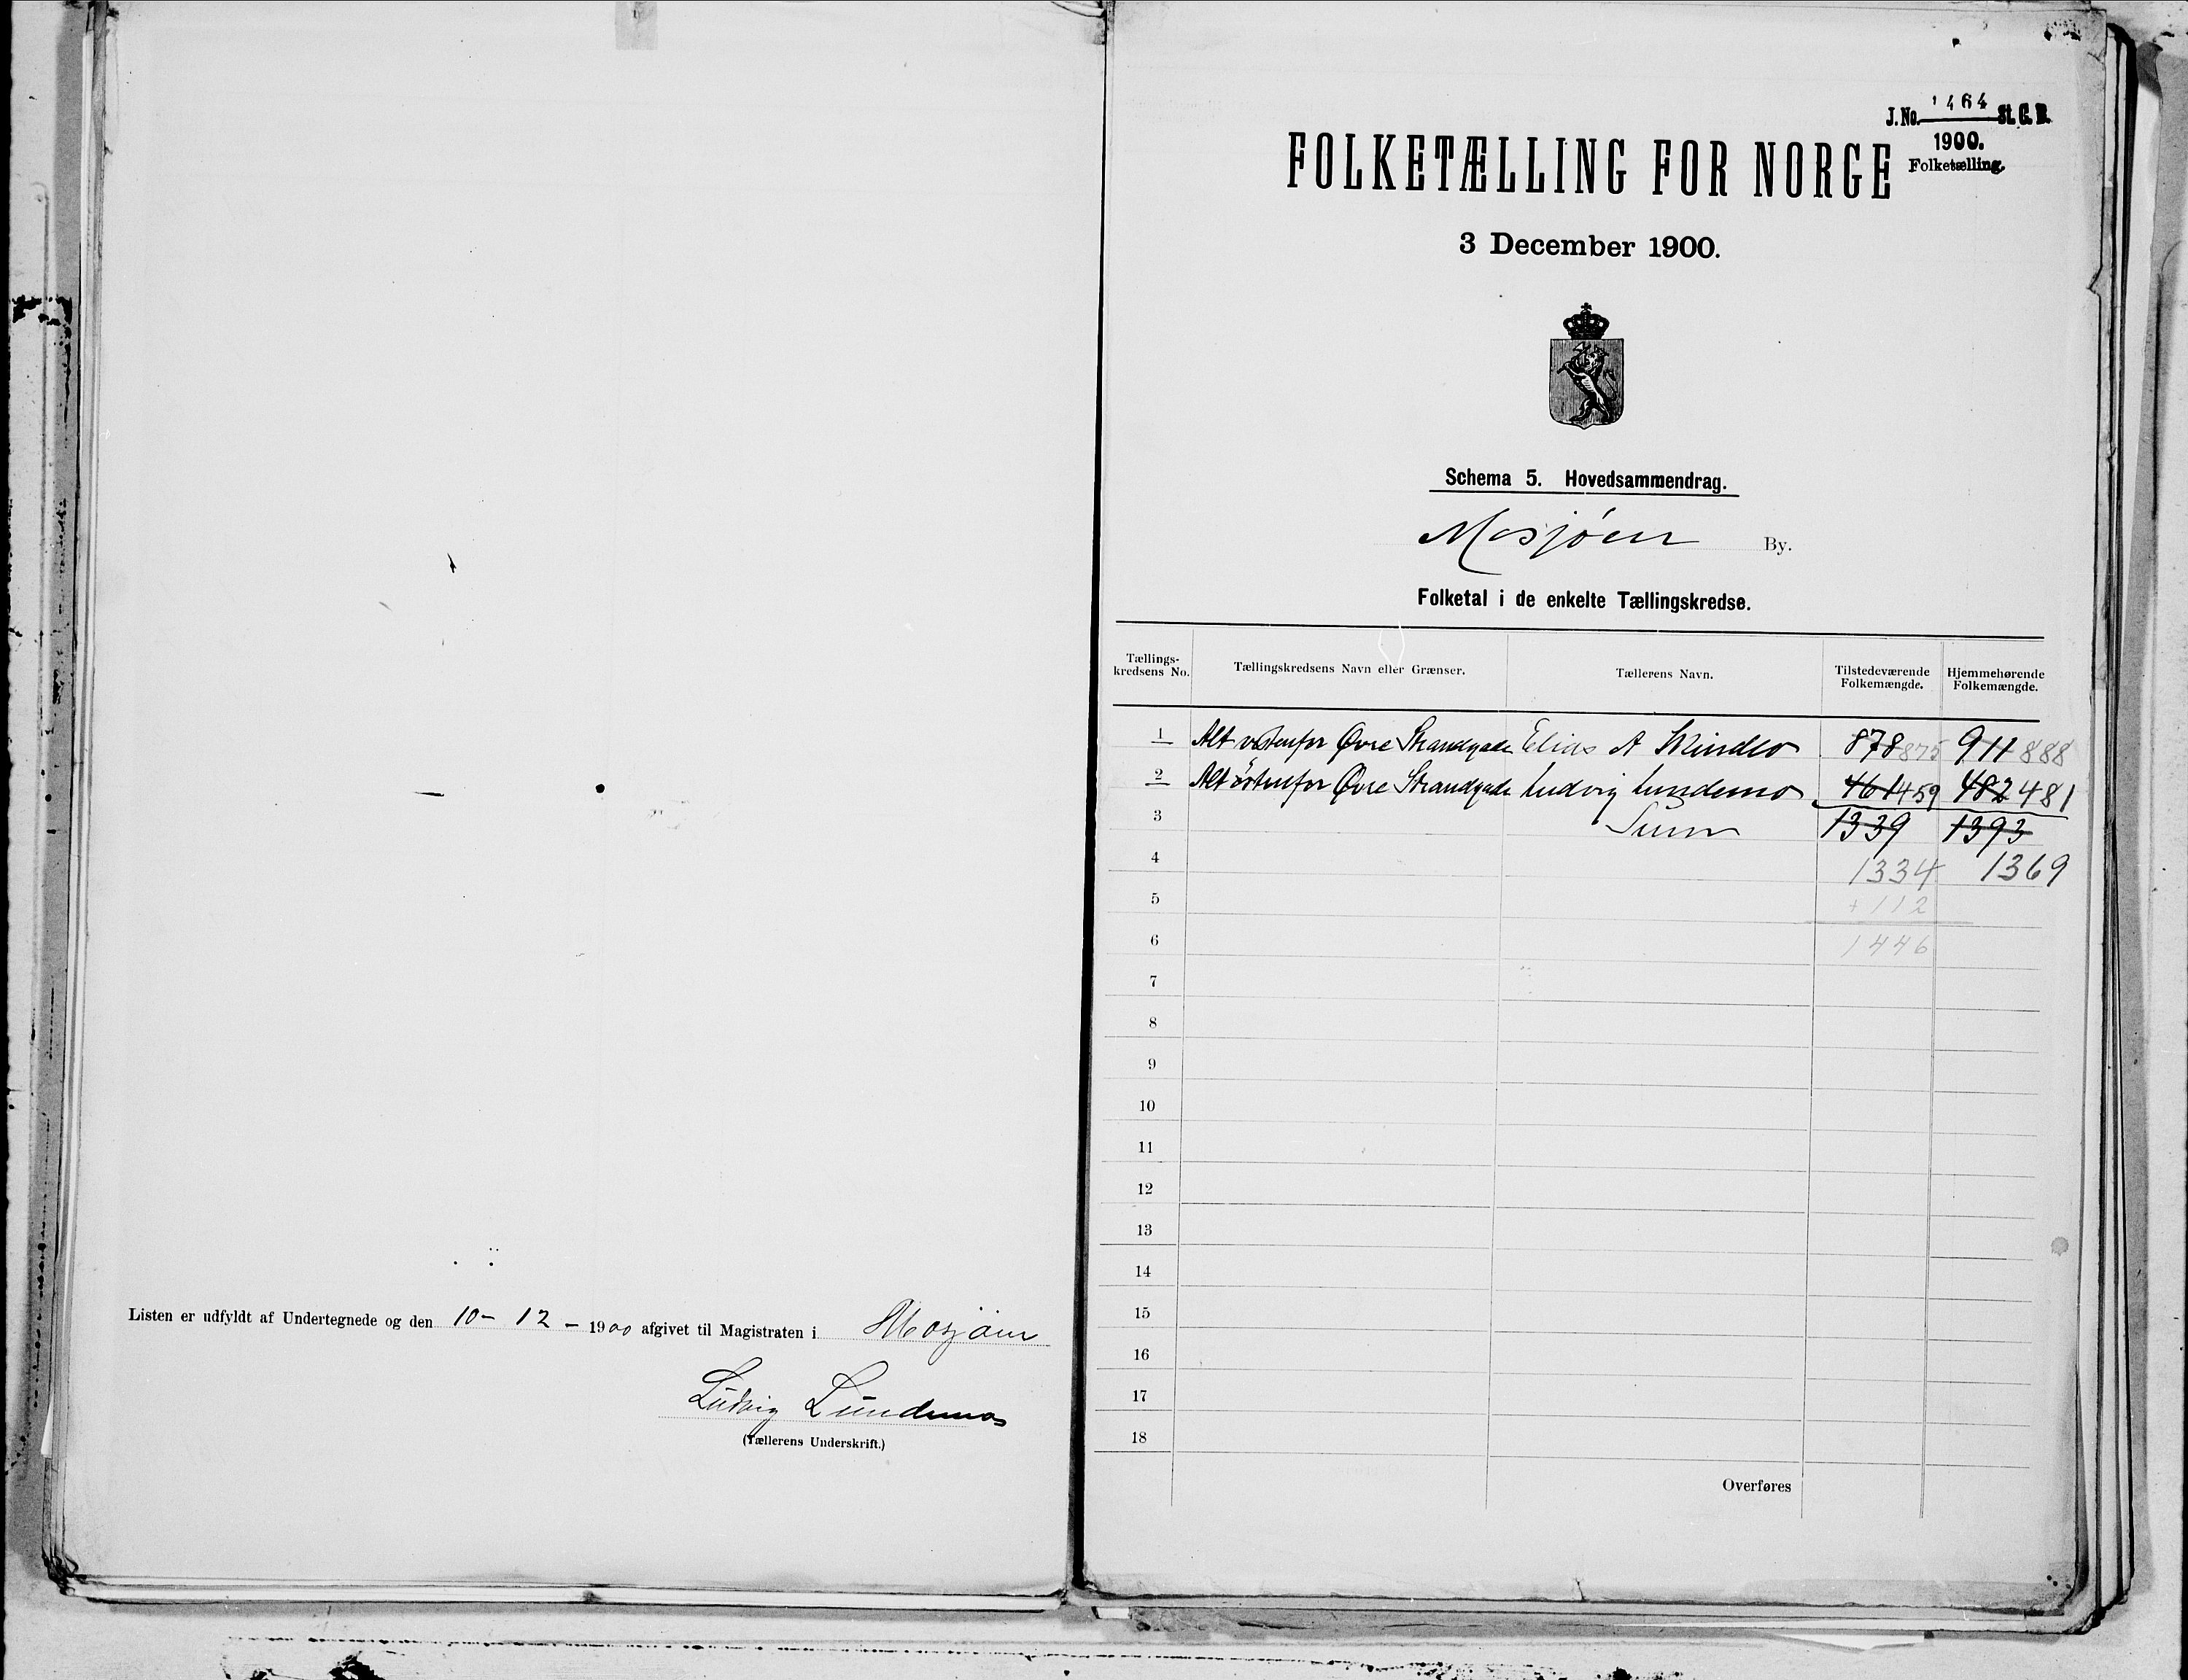 Listen er udfyldt af Undertegnede og den 10- 12 - 1900 afgivet til Magistraten i Mosjøen
Ludvig Lundemo
(Tællerens Underskrift.)
J. No. 1464 St. C. B.
1900.
Folketælling.
FOLKETÆLLING FOR NORGE
3 December 1900.
Schema 5. Hovedsammendrag.
Mosjøen By.
Folketal i de enkelte Tællingskredse.
Tællings-kredsens No. Tællingskredsens Navn eller Grænser. Tællerens Navn. Tilstedeværende Folkemængde. Hjemmehørende Folkemængde.
1 Alt vestenfor Øvre Strandgade Elias A 878 875 911 888
2 Alt östenfor Øvre Strandgade Ludvig Lundemo 461 459 482 481
3 Sum 1339 1393
4 1334 1369
5 + 112
6 1446
7
8
9
10
11
12
13
14
15
16
17
18
Overføres